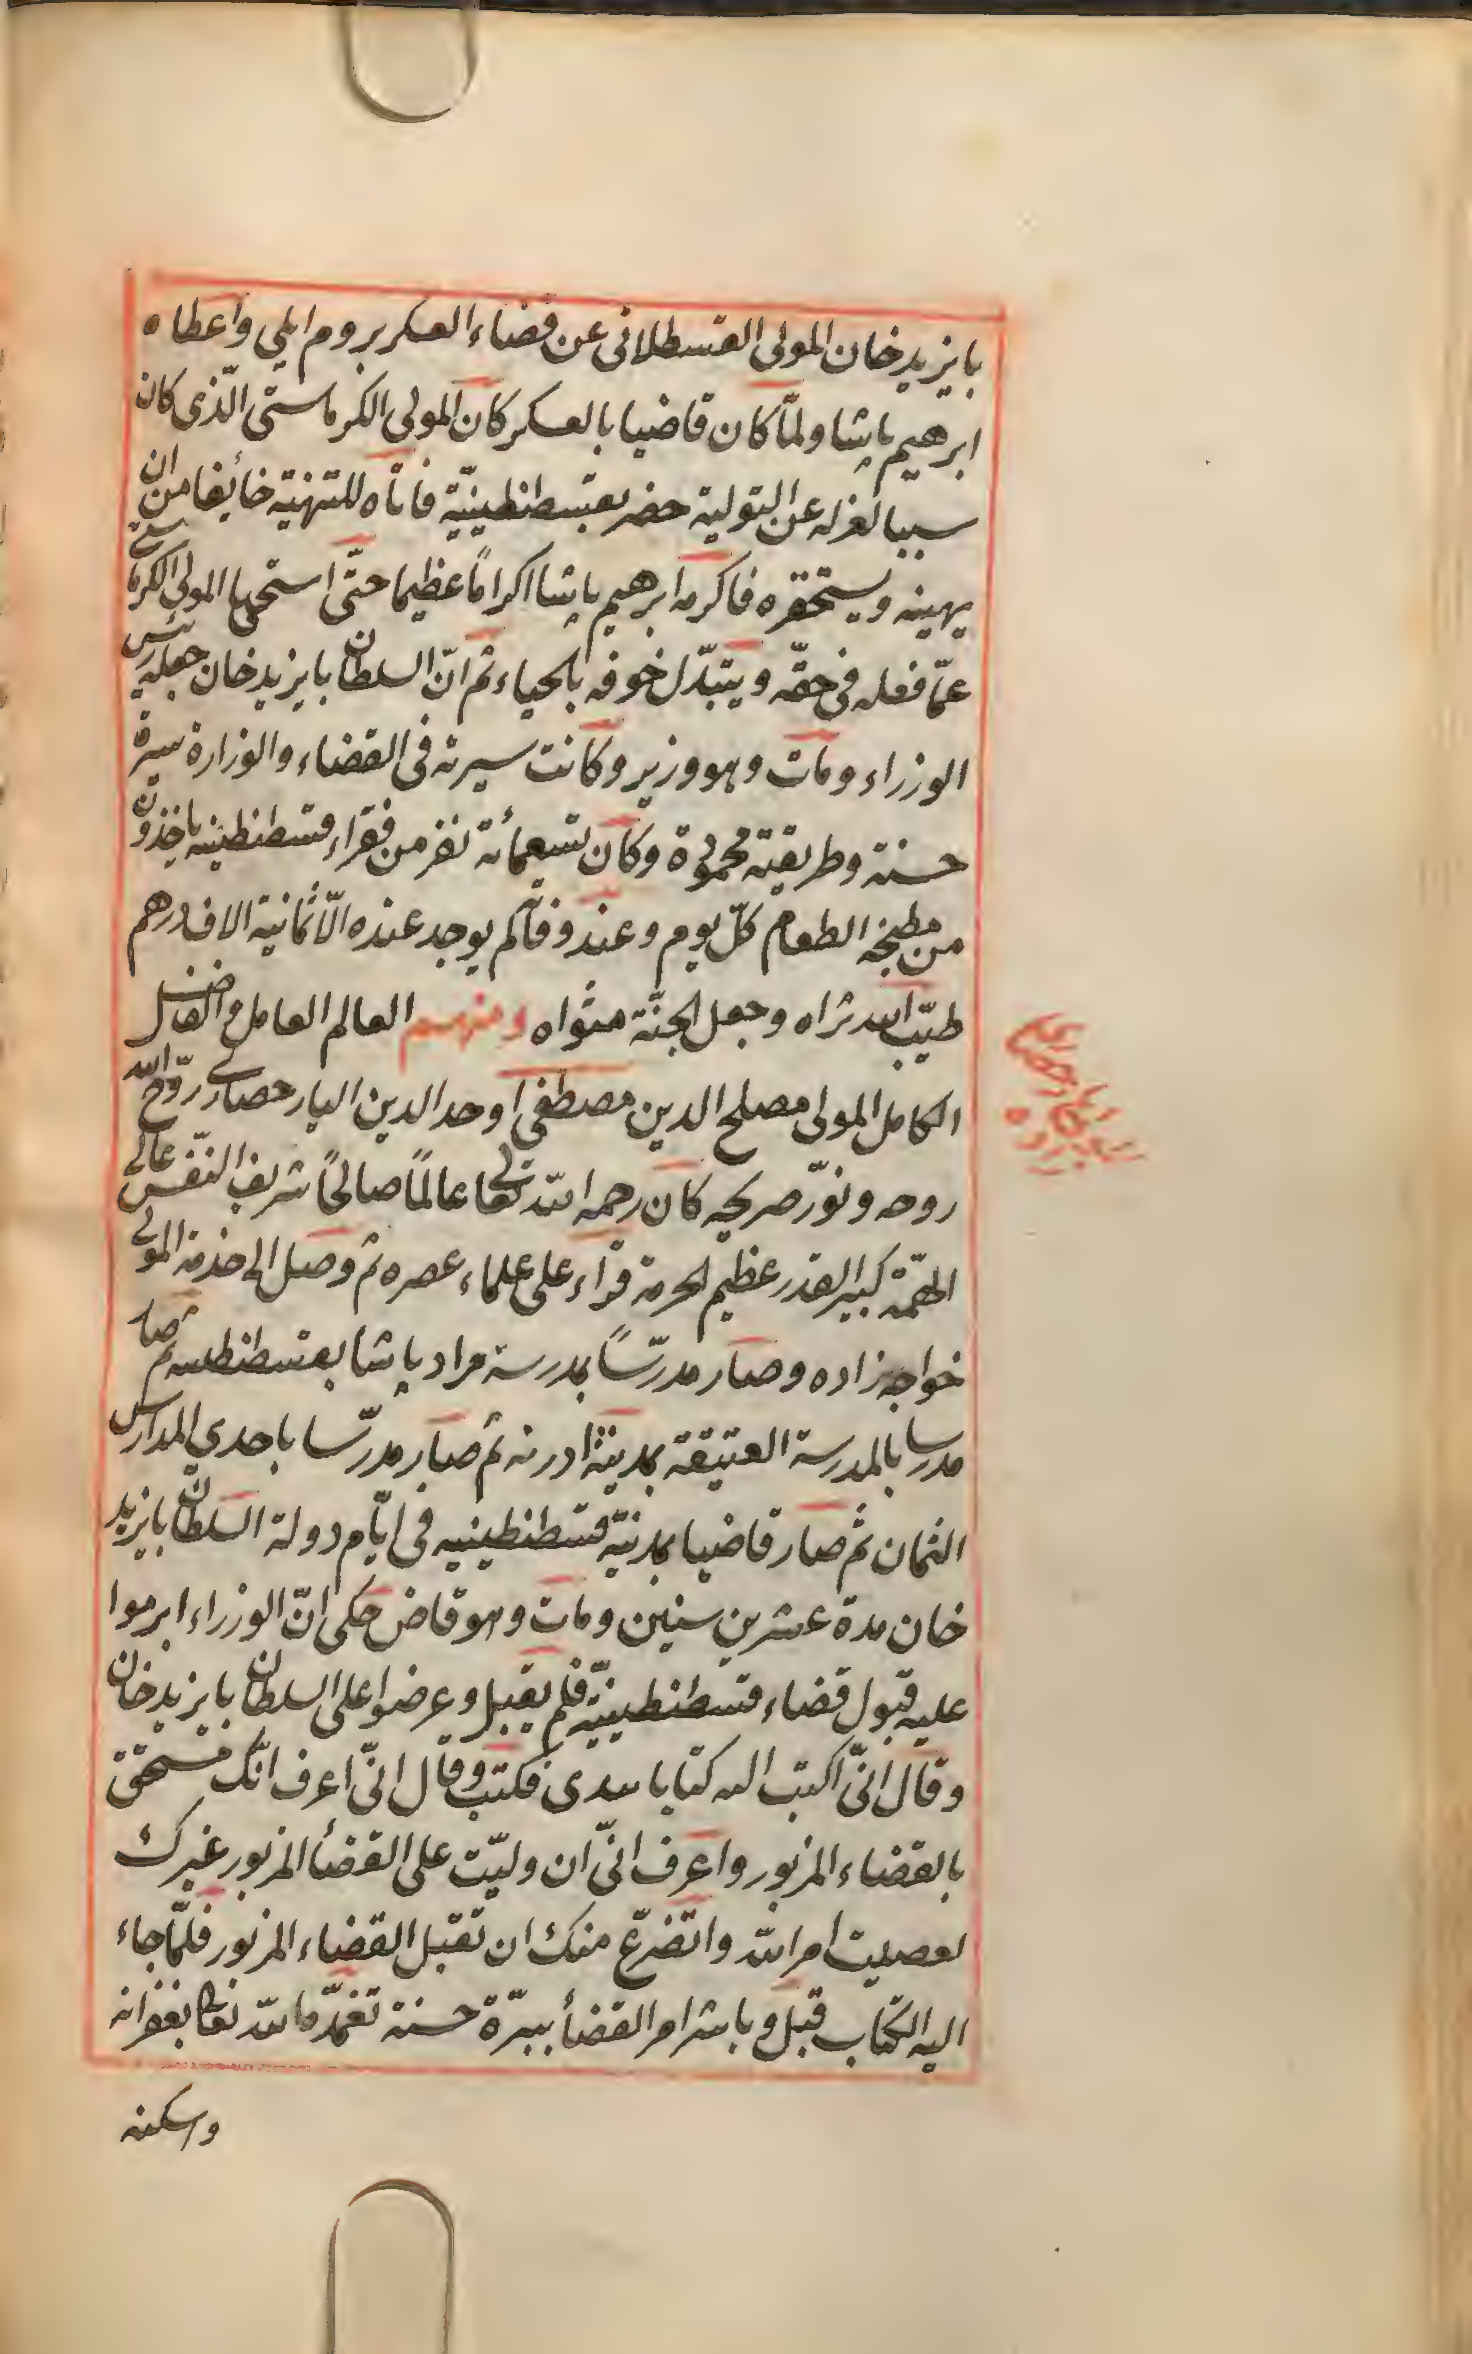 بايزيد خان المولى القسطلانى عن قضاء العسكر بروم ايلي واعطاه
ابرهيم پاشا ولمّا كان قاضيا بالعسكر كان المولى الكرماستى الّذى كان
سببا لعزله عن التولية حضر بقسطنطينيّة فاتاه للتهنية خائفا من ان
يهينه ويستحقره فاكرمه ابرهيم پاشا اكرامًا عظيما حتّى استحيا المولى الكرماستى
عمّا فعله فى حقّه ويتبدّل خوفه بالحياء ثم انّ السلطان بايزيد خان جعله رئيس
الوزراء ومات وهو وزير وكانت سيرته فى القضاء والوزارة سيرة
حسنة وطريقته محمودة وكان تسعمأئة نفر من فقراء قسطنطينيه ياخذون
من مطبخه الطعام كلّ يوم وعند وفاته لم يوجد عنده الّا ثمانية الاف درهم
طيّب الله ثراه وجعل الجنّة مثواه ومنهم العالم العامل والفاضل
الكامل المولى مصلح الدين مصطفى اوحد الدين اليارحصارى روّح الله
روحه ونوّر ضريحه كان رحمه الله تعالى عالمًا صالحًا شريف النفس عالى
الهمّة كبير القدر عظيم الحرمة قرأ على علماء عصره ثم وصل الى خدمة المولى
خواجه زاده وصار مدرّسًا بمدرسة مراد پاشا بقسطنطينيه ثم صار
مدرسا بالمدرسة العتيقة بمدينة ادرنه ثم صار مدرّسا باحدى المدارس
الثمان ثم صار قاضيا بمدينة قسطنطينيه فى ايّام دولة السلطان بايزيد
خان مدة عشرين سنين ومات وهو قاض حكى انّ الوزراء ابرموا
عليه قبول قضاء قسطنطينيّة فلم يقبل وعرضوا على السلطان بايزيد خان
وقال انّى اكتب اليه كتابا بيدى فكتب وقال انّى اعرف انّك مستحق
بالقضاء المزبور واعرف انّى ان وليّت على القضأ المزبور غيرك
لعصيت امر الله واتضرّع منك ان تقبل القضاء المزبور فلمّا جاء
اليه الكتاب قبل وباشر امر القضأ بسيرة حسنة تغمّده الله تعالى بغفرانه
واسكنه